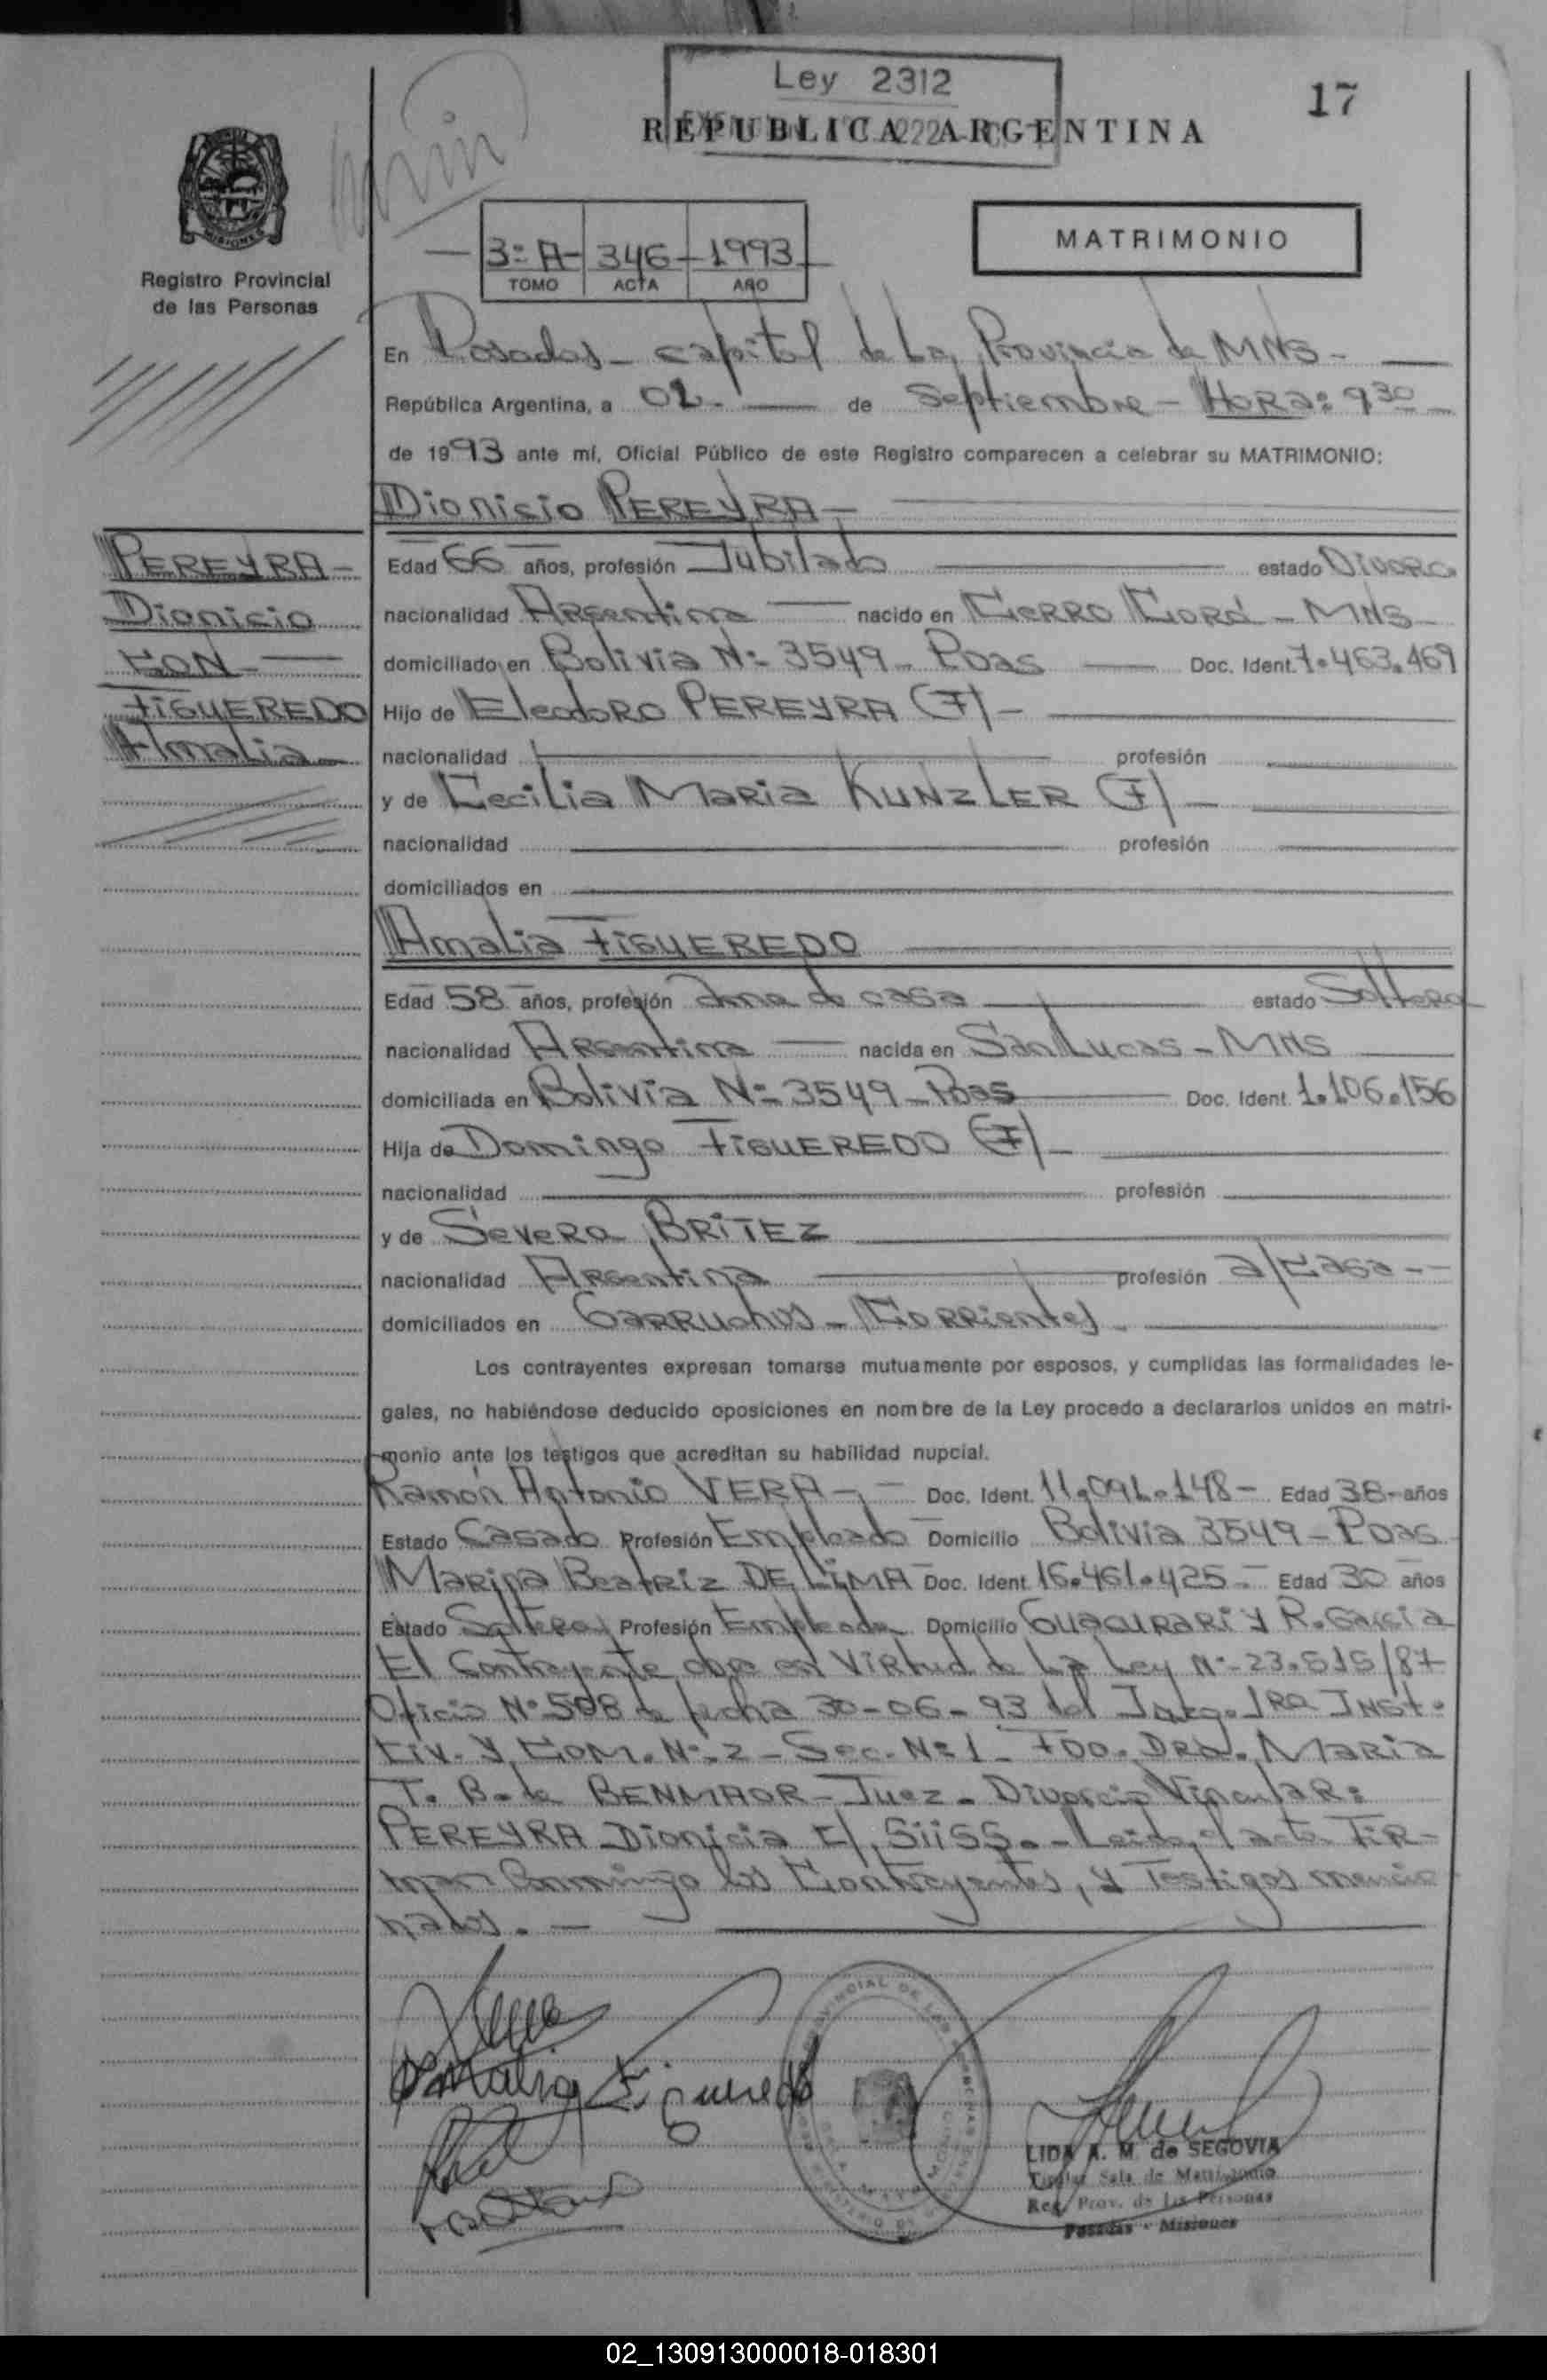 Ley 2312
17
REPUBLICA ARGENTINA
MISIONES
Registro Provincial
de las Personas
3º A- 346 - 1993
TOMO ACTA AÑO
MATRIMONIO
En Posadas - capital de La Provincia de MNS -
República Argentina, a 02 - de Septiembre - HORA: 9 30
de 1993 ante mí, Oficial Público de este Registro comparecen a celebrar su MATRIMONIO:
Dionisio PEREYRA -
PEREYRA -
Dionicio
CON -
FIGUEREDO
Amalia
Edad 66 años, profesión Jubilado estado Divorc
nacionalidad Argentina nacido en CERRO CORÁ - MNS -
domiciliado en Bolivia Nº 3549 - Pdas Doc. Ident. 7.463.469
Hijo de Eleodoro PEREYRA (F) -
nacionalidad profesión
y de Cecilia Maria KUNZLER (F) -
nacionalidad profesión
domiciliados en
Amalia FIGUEREDO
Edad 58 años, profesión ama de casa estado Soltera
nacionalidad Argentina nacida en San Lucas - MNS
domiciliada en Bolivia Nº 3549 - Pdas Doc. Ident. 1.106.156
Hija de Domingo FIGUEREDO (F) -
nacionalidad profesión
y de Severa BRITEZ
nacionalidad Argentina profesión a/casa --
domiciliados en Garruchos - Corrientes -
Los contrayentes expresan tomarse mutuamente por esposos, y cumplidas las formalidades le-
gales, no habiéndose deducido oposiciones en nombre de la Ley procedo a declararlos unidos en matri-
monio ante los testigos que acreditan su habilidad nupcial.
Ramón Antonio VERA - Doc. Ident. 11.091.148 - Edad 38 - años
Estado Casado Profesión Empleado Domicilio Bolivia 3549 - Pdas
Marina Beatriz DE LIMA Doc. Ident. 16.461.425 - Edad 30 años
Estado Soltera Profesión Empleada Domicilio Guacurarí y R. García
El Contrayente en Virtud de La Ley Nº 23.515/87
Oficio Nº 508 de fecha 30-06-93 del Juzg. 1ra Inst.
Civ. y Com. Nº 2 - Sec. Nº 1 - FDO. Dra. Maria
T. B. de BENMAOR - Juez - Divorcio Vincular:
PEREYRA Dionicia C/ - Leida el acta FIR-
man Conmigo los Contrayentes, y Testigos mencio
nados. -
Amalia Figueredo
LIDA A. M. de SEGOVIA
Titular Sala de Matrimonio
Reg. Prov. de las Personas
Posadas - Misiones
02_130913000018-018301